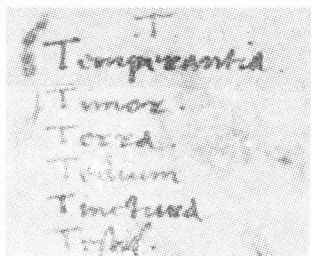 .T.
Temperantia.
Timor.
Terra.
Tedium
Tinctura